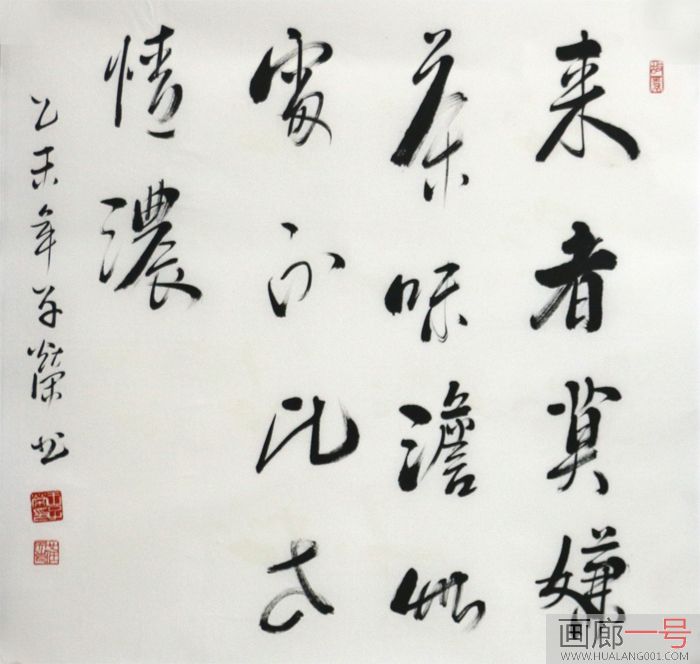 来者莫嫌
茶味澹此
處不比
情濃
乙未年 榮书
画廊一号
WWW.HUALANG001.COM